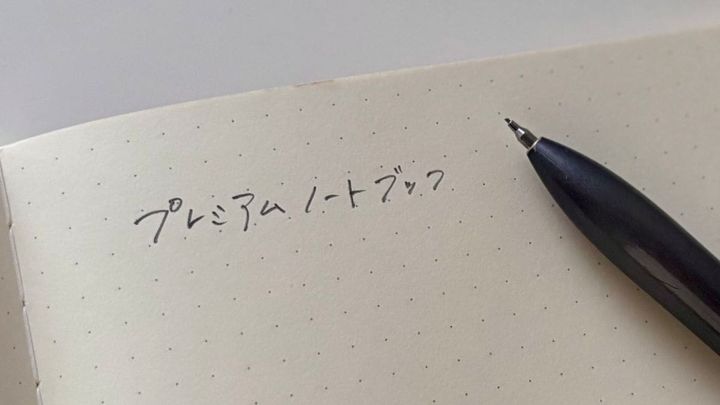 プレミアムノートブック